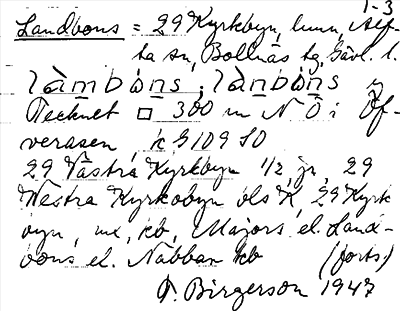 1-3
Landbons = 29 Kyrkbyn, hmn, Alf-
ta sn, Bollnäs tg, Gävl. l.
làmbòns, lànbòns
Tecknet □ 300 m N Ö i Öf-
verasen, k G 109 SO
29 Västra Kyrkbyn 1/2, jr, 29
Westra Kyrkobyn bls K, 29 Kyrk
byn, me, kb, Majors el. Land-
bons el. Nabban kb (forts)
F. Birgerson 1947